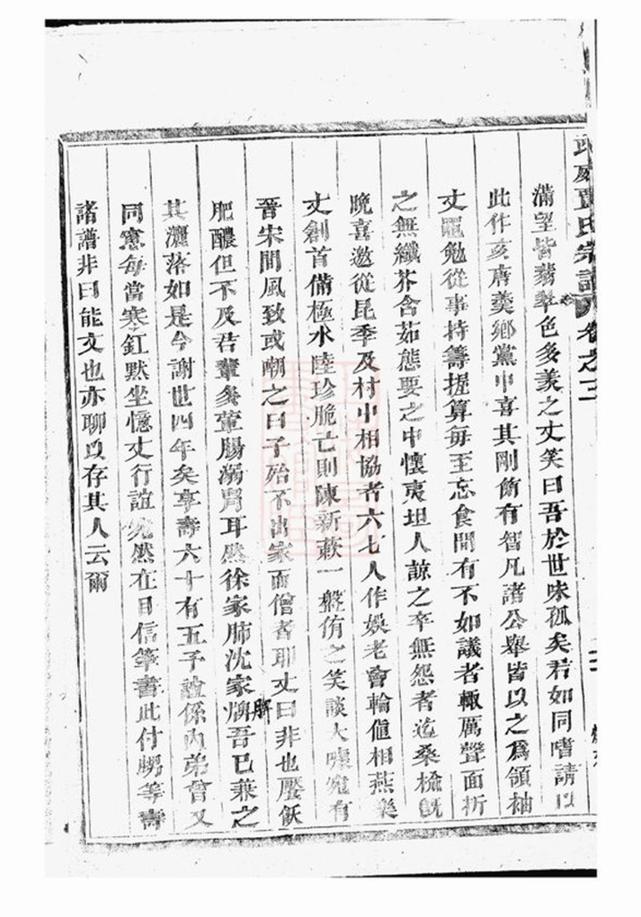 氏宗譜 卷之二
滿望皆翡翠色多羨之丈笑曰吾於世味孤矣君如同嗜請以
此作亥膚羹鄉黨中喜其剛飭有智凡諸公舉皆以之爲領袖
丈黽勉從事持籌握算每至忘食間有不如議者輒厲聲面折
之無纖芥含茹態要之中懷夷坦人諒之卒無怨者迨桑榆旣
晚喜邀從昆季及村中相協者六七人作娛老會輪値相燕樂
丈創首備極水陸珍脆亡則陳新蔌一盤侑之笑談大嚛宛有
晉宋間風致或嘲之曰子殆不出家而僧者耶丈曰非也饜飫
肥醲但不及君輩矣葷腸溺胃耳然徐家肺沈家脾吾已兼之
其灑落如是今謝世四年矣享壽六十有五予誼係內弟曾又
同窻每當寒釭默坐憶丈行誼宛然在目信筆書此付甥等壽
諸譜非曰能文也亦聊以存其人云爾